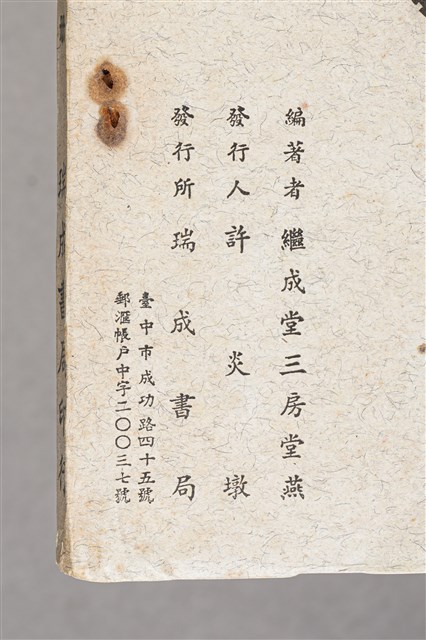 編著者 繼成堂三房堂燕
發行人 許炎墩
發行所 瑞成書局
臺中市成功路四十五號
郵滙帳戶中字二〇〇三七號
瑞成書局印行